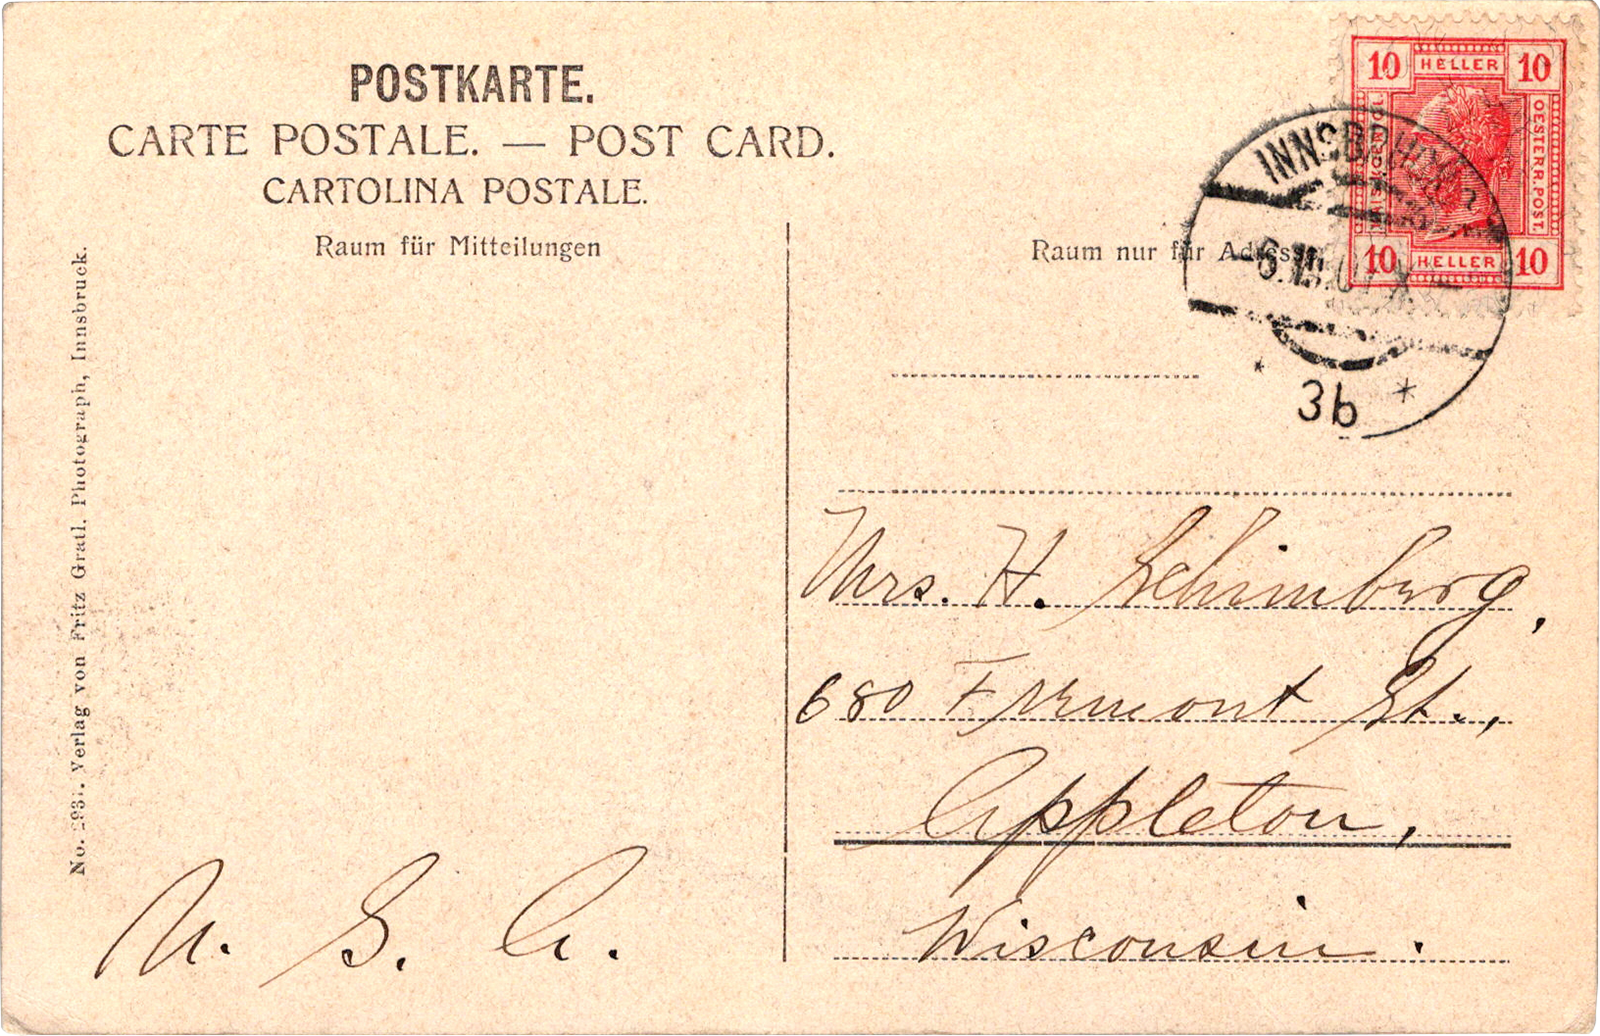 POSTKARTE.
CARTE POSTALE. — POST CARD.
CARTOLINA POSTALE.
Raum für Mitteilungen
Verlag von Fritz Gratl. Photograph, Innsbruck.
U. S. A.
Raum nur für Adresse
10 HELLER 10
OESTERR. POST.
10 HELLER 10
INNSBRUCK 2
3b
Mrs. H. Schimberg,
680 Fremont St.,
Appleton,
Wisconsin.